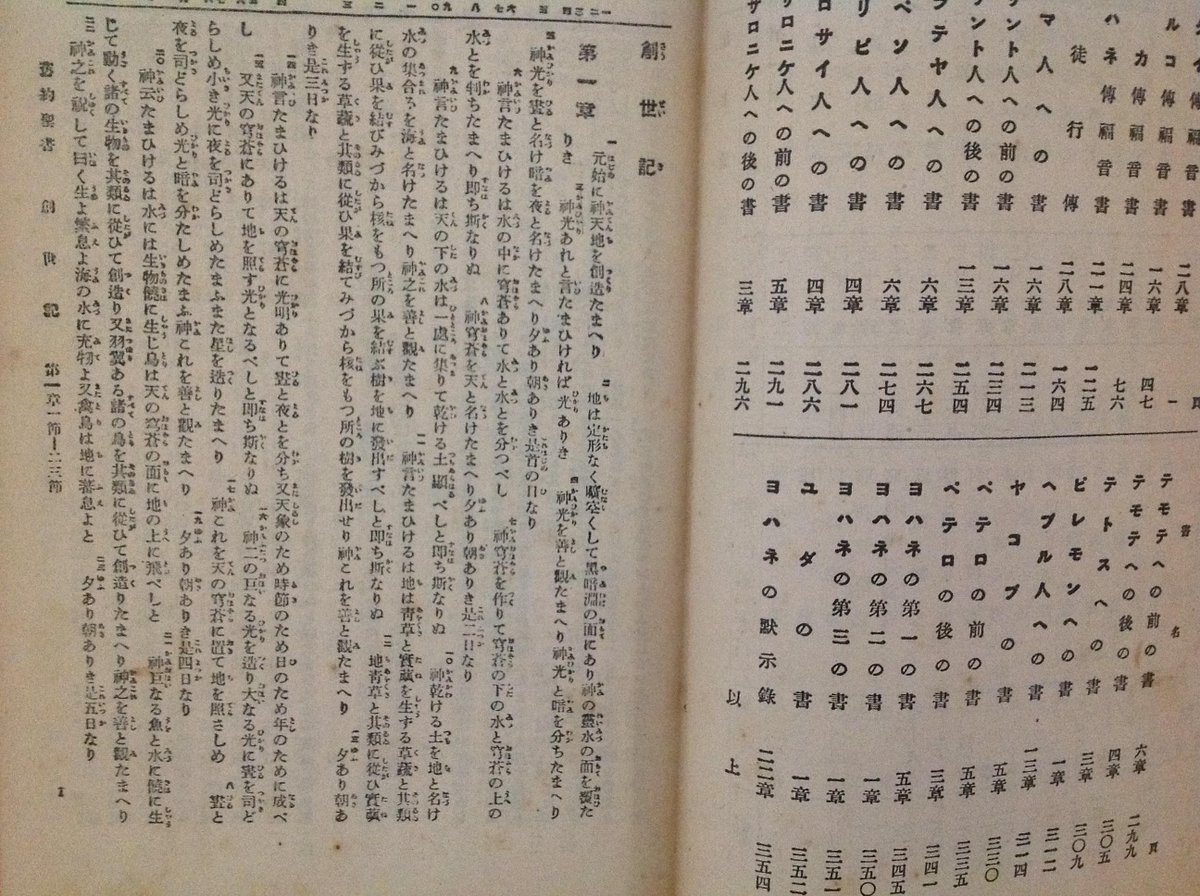 タイ傳福音書 二八章 一
ルコ傳福音書 一六章 四七
カ傳福音書 二四章 七六
ハネ傳福音書 二一章 一二五
徒行傳 二八章 一六四
マ人への書 一六章 二一三
ント人への前の書 一六章 二三四
ント人への後の書 一三章 二五四
ラテヤ人への書 六章 二六七
ペソ人への書 六章 二七四
リピ人への書 四章 二八一
ロサイ人への書 四章 二八六
サロニケ人への前の書 五章 二九一
サロニケ人への後の書 三章 二九六
書名 頁
テモテへの前の書 六章 二九九
テモテへの後の書 四章 三〇五
テトスへの書 三章 三〇九
ピレモンへの書 一章 三一二
ヘブル人への書 一三章 三一四
ヤコブの書 五章 三三〇
ペテロの前の書 五章 三三五
ペテロの後の書 三章 三四一
ヨハネの第一の書 五章 三四五
ヨハネの第二の書 一章 三五〇
ヨハネの第三の書 一章 三五一
ユダの書 一章 三五二
ヨハネの默示錄 二二章 三五四
以上
創世記
第一章
一 元始に神天地を創造たまへり 二 地は定形なく曠空くして黑暗淵の面にあり神の靈水の面を覆た
りき 三 神光あれと言たまひければ光ありき 四 神光を善と觀たまへり神光と暗を分ちたまへり
五 神光を晝と名け暗を夜と名けたまへり夕あり朝ありき是首の日なり
六 神言たまひけるは水の中に穹蒼ありて水と水とを分つべし 七 神穹蒼を作りて穹蒼の下の水と穹蒼の上の
水とを判ちたまへり即ち斯なりぬ 八 神穹蒼を天と名けたまへり夕あり朝ありき是二日なり
九 神言たまひけるは天の下の水は一處に集りて乾ける土顯べしと即ち斯なりぬ 一〇 神乾ける土を地と名け
水の集合るを海と名けたまへり神之を善と觀たまへり 一一 神言たまひけるは地は靑草と實蓏を生ずる草蔬と其類
に從ひ果を結びみづから核をもつ所の果を結ぶ樹を地に發出すべしと即ち斯なりぬ 一二 地靑草と其類に從ひ實蓏
を生ずる草蔬と其類に從ひ果を結てみづから核をもつ所の樹を發出せり神これを善と觀たまへり 一三 夕あり朝あ
りき是三日なり
一四 神言たまひけるは天の穹蒼に光明ありて晝と夜とを分ち又天象のため時節のため日のため年のために成べ
し 一五 又天の穹蒼にありて地を照す光となるべしと即ち斯なりぬ 一六 神二の巨なる光を造り大なる光に晝を司ど
らしめ小き光に夜を司どらしめたまふまた星を造りたまへり 一七 神これを天の穹蒼に置て地を照さしめ 一八 晝と
夜を司どらしめ光と暗を分たしめたまふ神これを善と觀たまへり 一九 夕あり朝ありき是四日なり
二〇 神云たまひけるは水には生物饒に生じ鳥は天の穹蒼の面に地の上に飛べしと 二一 神巨なる魚と水に饒に生
じて動く諸の生物を其類に從ひて創造り又羽翼ある諸の鳥を其類に從ひて創造りたまへり神之を善と觀たまへり
二二 神之を祝して曰く生よ繁息よ海の水に充物よ又禽鳥は地に蕃息よと 二三 夕あり朝ありき是五日なり
舊約聖書 創世記 第一章一節―二三節
1